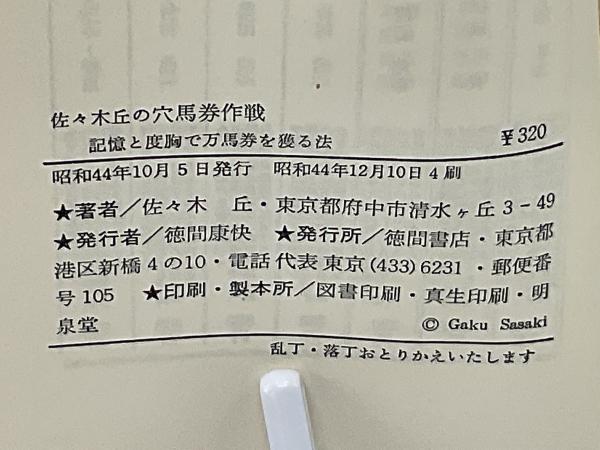 佐々木丘の穴馬券作戦
記憶と度胸で万馬券を獲る法 ¥320
昭和44年10月5日発行 昭和44年12月10日4刷
★著者/佐々木 丘・東京都府中市清水ヶ丘3-49
★発行者/徳間康快 ★発行所/徳間書店・東京都
港区新橋4の10・電話代表東京(433)6231・郵便番
号105 ★印刷・製本所/図書印刷・真生印刷・明
泉堂 © Gaku Sasaki
乱丁・落丁おとりかえいたします